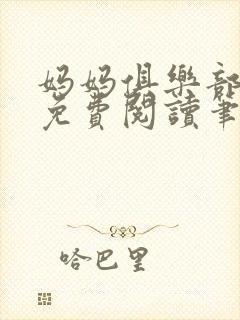 妈妈俱樂部
免費閱讀筆
哈巴里